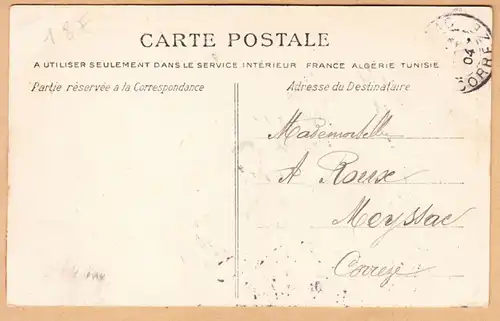 18F
CARTE POSTALE
A UTILISER SEULEMENT DANS LE SERVICE INTÉRIEUR FRANCE ALGÉRIE TUNISIE
Partie réservée a la Correspondance
Adresse du Destinataire
04
CORRÈZE
Mademoiselle
A Roux
Meyssac
Corrèze